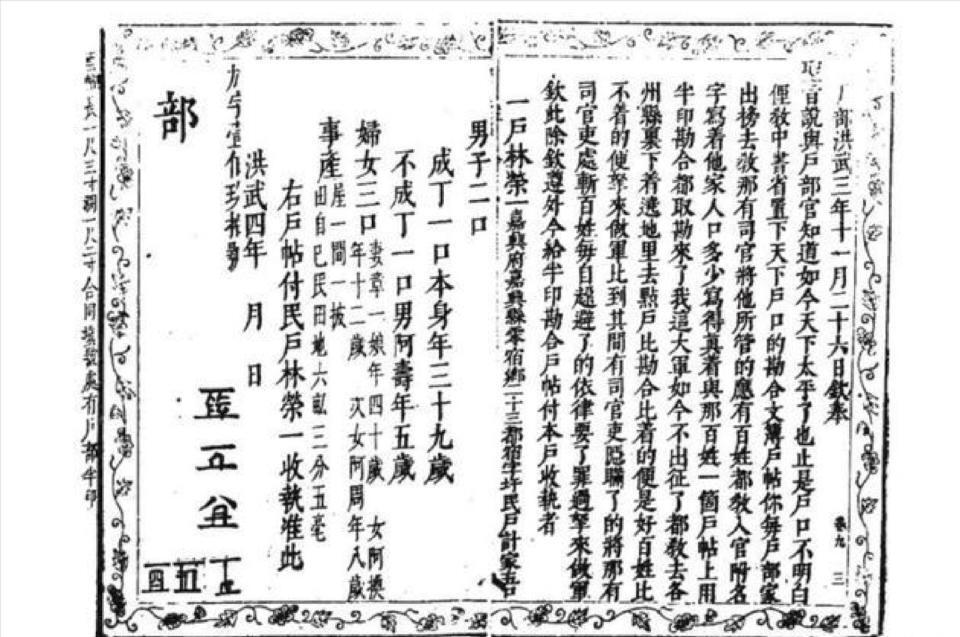 户部洪武三年十一月二十六日欽奉
聖旨說與戶部官知道如今天下太平了也止是戶口不明白
俚教中書省置下天下戶口的勘合文簿戶帖你每戶部家
出榜去教那有司官將他所管的應有百姓都教入官附名
字寫着他家人口多少寫得真着與那百姓一箇戶帖上用
半印勘合都取勘來了我這大軍如今不出征了都教去各
州縣裏下着遶地里去點戶比勘合比着的便是好百姓比
不着的便拏來做軍比到其間有司官吏隱瞞了的將那有
司官吏處斬百姓每自趓避了的依律要了罪過拏來做軍
欽此除欽遵外今給半印勘合戶帖付本戶收執者
一戶林榮一嘉興府嘉興縣零宿鄉二十三都宿字圩民戶計家五口
男子二口
成丁一口本身年三十九歲
不成丁一口男阿壽年五歲
婦女三口妻章一娘年四十歲 女阿換
年十二歲 次女阿周年八歲
事產屋一間一披
田自己民田地六畝三分五毫
右戶帖付民戶林榮一收執准此
洪武四年 月 日
部
卷九 三
長一尺三寸濶一尺二寸合同墳號處有戶部半印